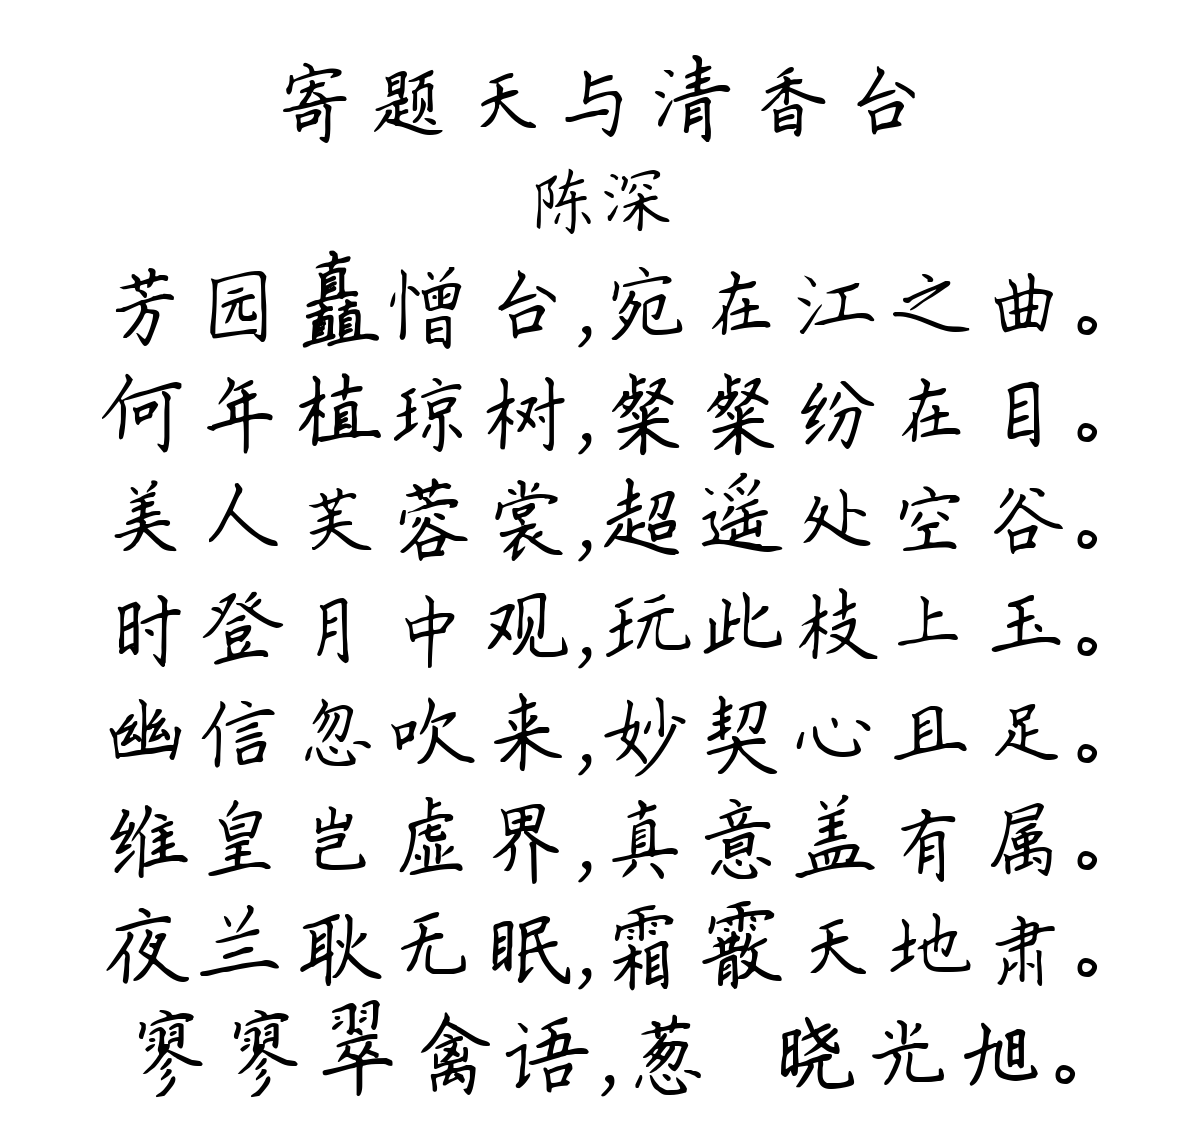 寄题天与清香台
陈深
芳园矗憎台,宛在江之曲。
何年植琼树,粲粲纷在目。
美人芙蓉裳,超遥处空谷。
时登月中观,玩此枝上玉。
幽信忽吹来,妙契心且足。
维皇岂虚界,真意盖有属。
夜兰耿无眠,霜霰天地肃。
寥寥翠禽语,葱 晓光旭。